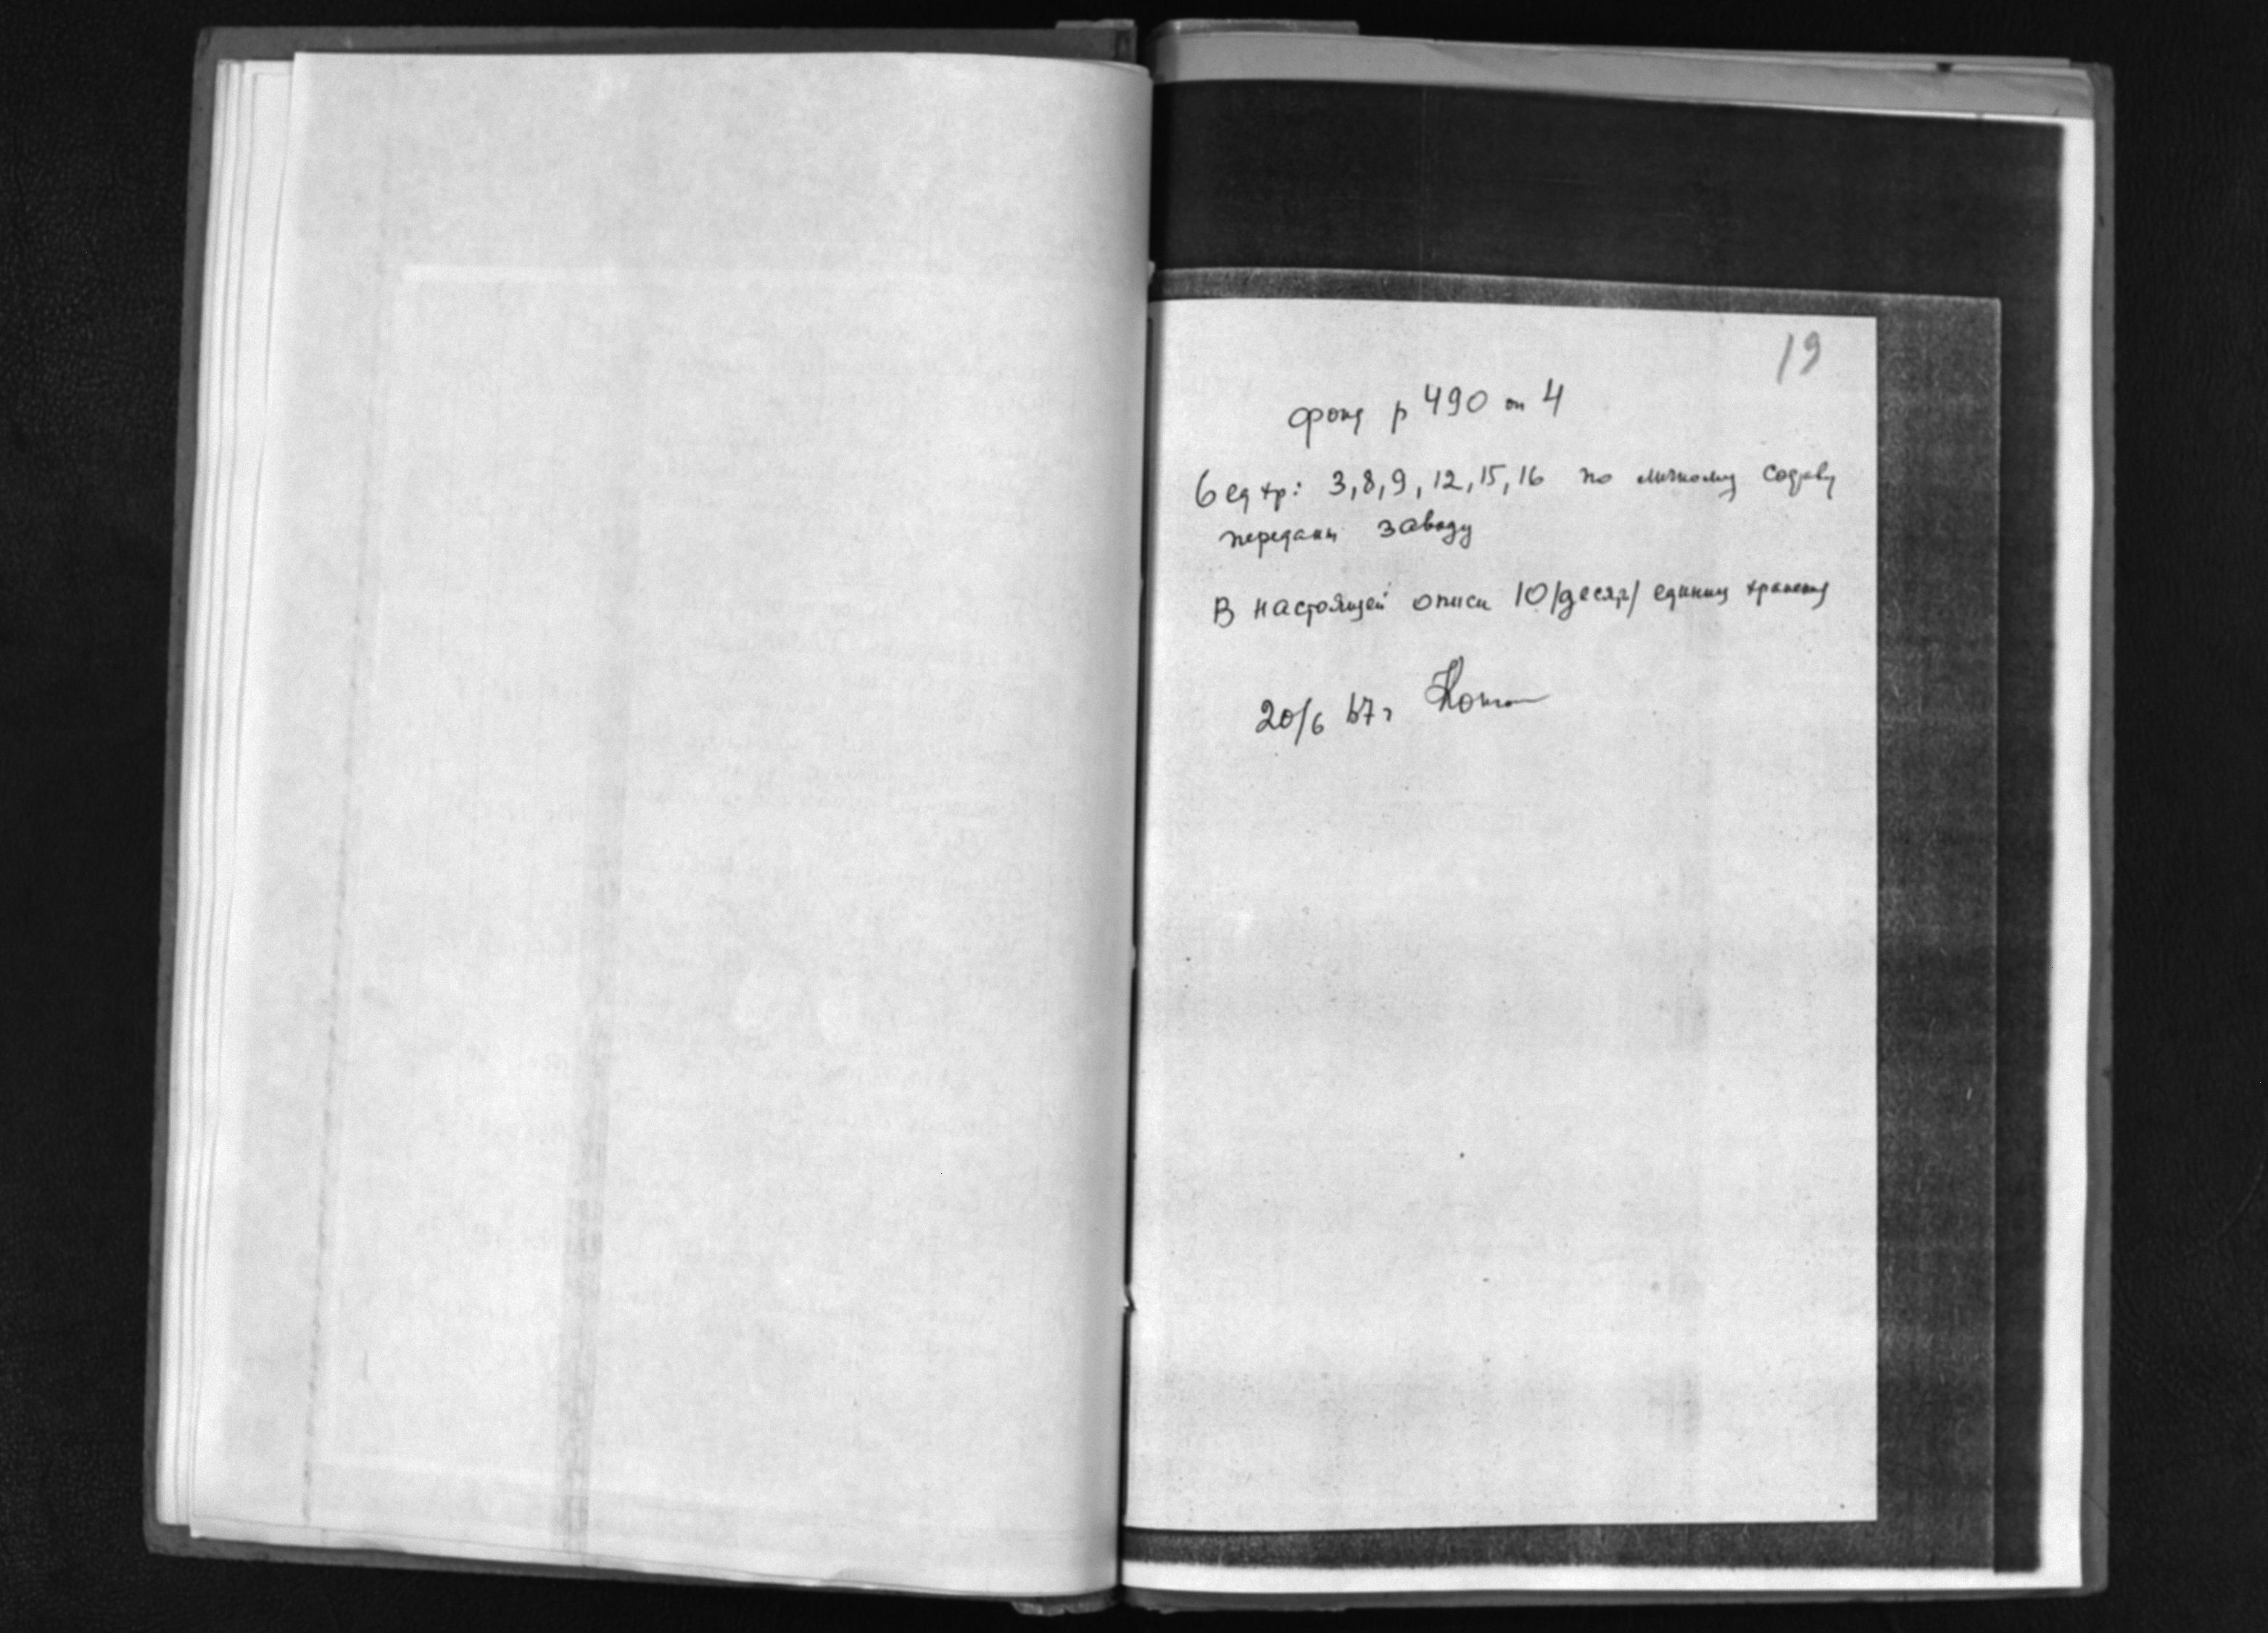 19
фонд р 490 оп 4
6 ед хр: 3,8,9,12,15,16 по личному составу
переданы заводу
В настоящей описи 10/десят/ единиц хранения
20/6 67 г